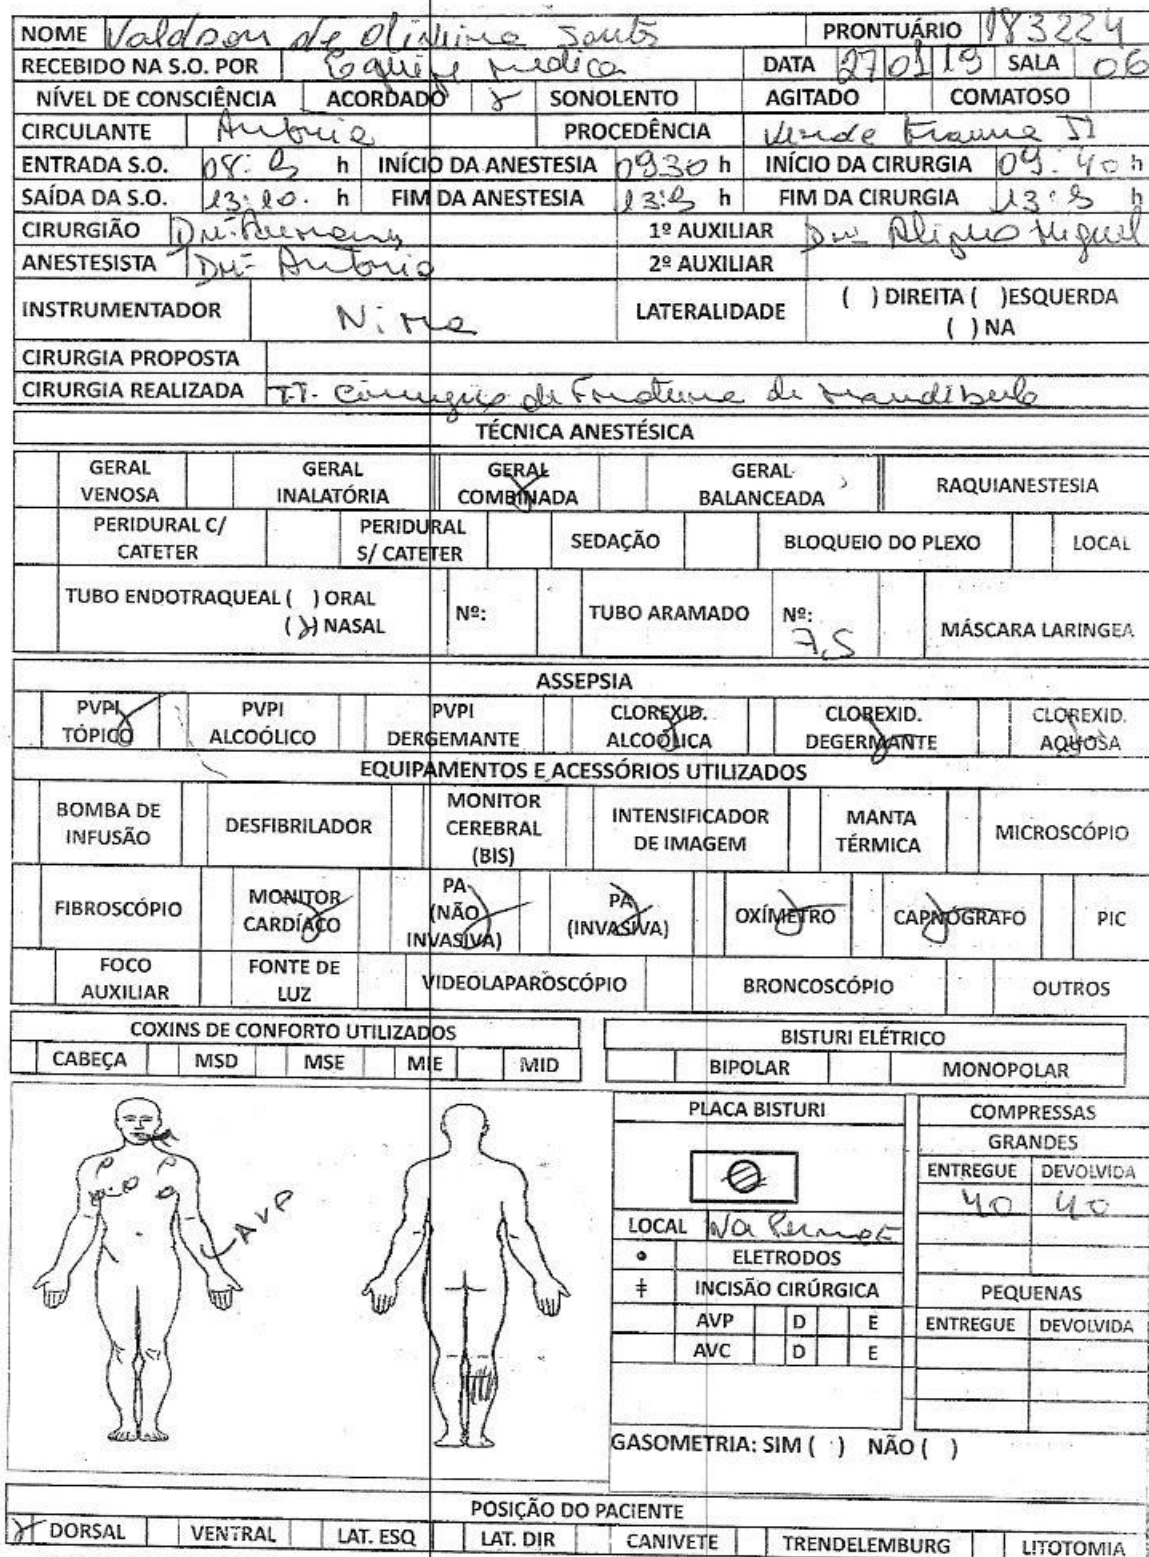 NOME Valdson de Oliveira Santos PRONTUÁRIO 183224
RECEBIDO NA S.O. POR Equipe medica DATA 27 01 19 SALA 06
NÍVEL DE CONSCIÊNCIA ACORDADO X SONOLENTO AGITADO COMATOSO
CIRCULANTE PROCEDÊNCIA Verde Trauma II
ENTRADA S.O. 08: h INÍCIO DA ANESTESIA 0930 h INÍCIO DA CIRURGIA 09:40 h
SAÍDA DA S.O. 13:20. h FIM DA ANESTESIA 13: h FIM DA CIRURGIA 13: h
CIRURGIÃO 1º AUXILIAR Miguel
ANESTESISTA Antonio 2º AUXILIAR
INSTRUMENTADOR LATERALIDADE ( ) DIREITA ( )ESQUERDA
( ) NA
CIRURGIA PROPOSTA
CIRURGIA REALIZADA TT. Cirurgico de Fratura de Mandibula
TÉCNICA ANESTÉSICA
GERAL VENOSA GERAL INALATÓRIA GERAL COMBINADA GERAL BALANCEADA RAQUIANESTESIA
PERIDURAL C/ CATETER PERIDURAL S/ CATETER SEDAÇÃO BLOQUEIO DO PLEXO LOCAL
TUBO ENDOTRAQUEAL ( ) ORAL
(X) NASAL Nº: TUBO ARAMADO Nº: 7,5 MÁSCARA LARINGEA
ASSEPSIA
PVPI TÓPICO PVPI ALCOÓLICO PVPI DERGEMANTE CLOREXID. ALCOÓLICA CLOREXID. DEGERMANTE CLOREXID. AQUOSA
EQUIPAMENTOS E ACESSÓRIOS UTILIZADOS
BOMBA DE INFUSÃO DESFIBRILADOR MONITOR CEREBRAL (BIS) INTENSIFICADOR DE IMAGEM MANTA TÉRMICA MICROSCÓPIO
FIBROSCÓPIO MONITOR CARDÍACO PA (NÃO INVASIVA) PA (INVASIVA) OXÍMETRO CAPNÓGRAFO PIC
FOCO AUXILIAR FONTE DE LUZ VIDEOLAPAROSCÓPIO BRONCOSCÓPIO OUTROS
COXINS DE CONFORTO UTILIZADOS BISTURI ELÉTRICO
CABEÇA MSD MSE MIE MID BIPOLAR MONOPOLAR
AVP
PLACA BISTURI COMPRESSAS
GRANDES
ENTREGUE DEVOLVIDA
40 40
LOCAL Na Perna E
ELETRODOS
INCISÃO CIRÚRGICA PEQUENAS
AVP D E ENTREGUE DEVOLVIDA
AVC D E
GASOMETRIA: SIM ( ) NÃO ( )
POSIÇÃO DO PACIENTE
X DORSAL VENTRAL LAT. ESQ LAT. DIR CANIVETE TRENDELEMBURG LITOTOMIA